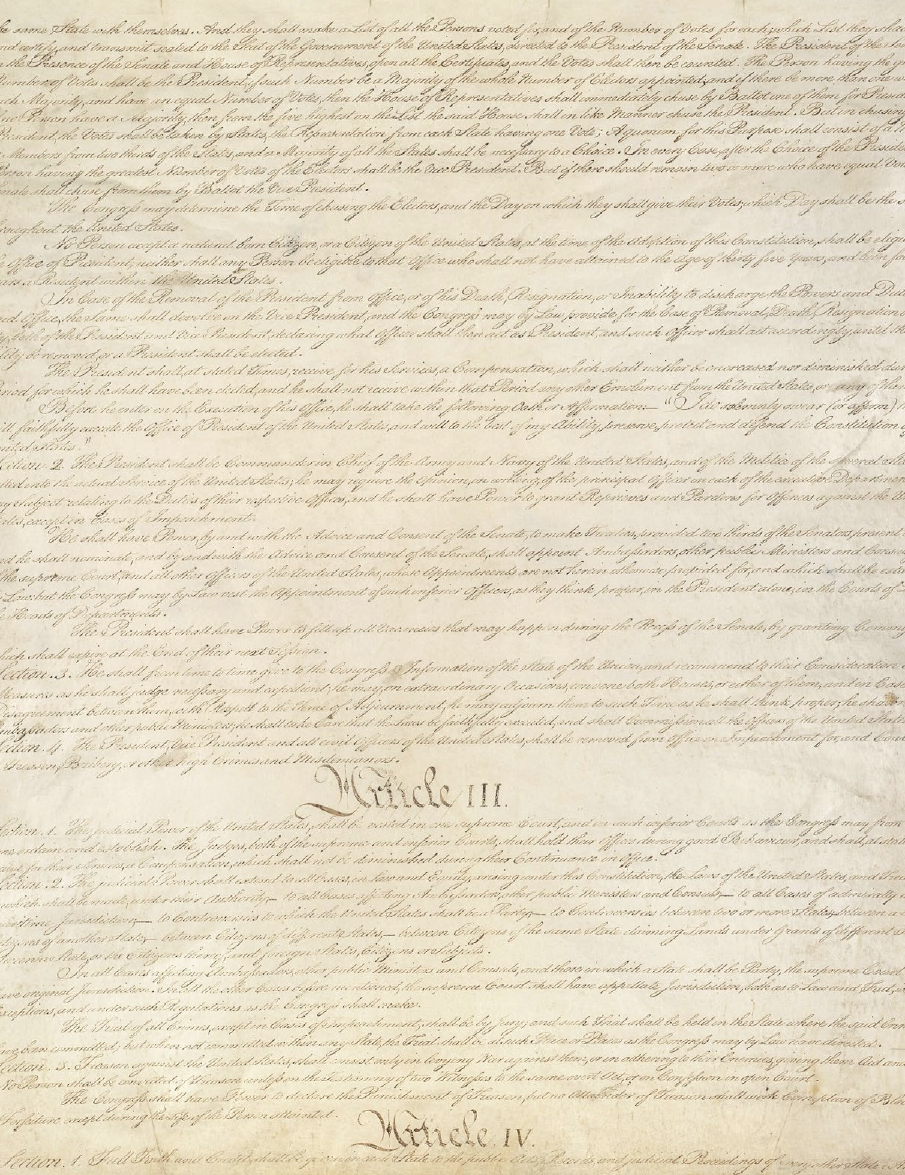 same State with themselves. And they shall make a List of all the Persons voted for, and of the Number of Votes for each; which List they shall
and certify, and transmit sealed to the Seat of the Government of the United States, directed to the President of the Senate. The President of the
the Presence of the Senate and House of Representatives, open all the Certificates, and the Votes shall then be counted. The Person having the
Number of Votes shall be the President, if such Number be a Majority of the whole Number of Electors appointed; and if there be more than one
such Majority, and have an equal Number of Votes, then the House of Representatives shall immediately chuse by Ballot one of them for
Person have a Majority, then from the five highest on the List the said House shall in like Manner chuse the President. But in chusing
President, the Votes shall be taken by States, the Representation from each State having one Vote; A quorum for this Purpose shall consist of a
Members from two thirds of the States, and a Majority of all the States shall be necessary to a Choice. In every Case, after the Choice of the
Person having the greatest Number of Votes of the Electors shall be the Vice President. But if there should remain two or more who have equal
Senate shall chuse from them by Ballot the Vice President.
The Congress may determine the Time of chusing the Electors, and the Day on which they shall give their Votes; which Day shall be the
throughout the United States.
No Person except a natural born Citizen, or a Citizen of the United States, at the time of the Adoption of this Constitution, shall be
Office of President; neither shall any Person be eligible to that Office who shall not have attained to the Age of thirty five Years, and been
a Resident within the United States.
In Case of the Removal of the President from Office, or of his Death, Resignation, or Inability to discharge the Powers and
said Office, the Same shall devolve on the Vice President, and the Congress may by Law provide for the Case of Removal, Death, Resignation
both of the President and Vice President, declaring what Officer shall then act as President, and such Officer shall act accordingly, until the
be removed, or a President shall be elected.
The President shall, at stated Times, receive for his Services, a Compensation, which shall neither be encreased nor diminished
for which he shall have been elected, and he shall not receive within that Period any other Emolument from the United States, or any of them.
Before he enter on the Execution of his Office, he shall take the following Oath or Affirmation:— "I do solemnly swear (or affirm)
will faithfully execute the Office of President of the United States, and will to the best of my Ability, preserve, protect and defend the Constitution
United States."
Section. 2. The President shall be Commander in Chief of the Army and Navy of the United States, and of the Militia of the several
into the actual Service of the United States; he may require the Opinion, in writing, of the principal Officer in each of the executive
Subject relating to the Duties of their respective Offices, and he shall have Power to grant Reprieves and Pardons for Offences against the
except in Cases of Impeachment.
He shall have Power, by and with the Advice and Consent of the Senate, to make Treaties, provided two thirds of the Senators present
he shall nominate, and by and with the Advice and Consent of the Senate, shall appoint Ambassadors, other public Ministers and
the supreme Court, and all other Officers of the United States, whose Appointments are not herein otherwise provided for, and which shall be
Law: but the Congress may by Law vest the Appointment of such inferior Officers, as they think proper, in the President alone, in the Courts of
Heads of Departments.
The President shall have Power to fill up all Vacancies that may happen during the Recess of the Senate, by granting
shall expire at the End of their next Session.
Section. 3. He shall from time to time give to the Congress Information of the State of the Union, and recommend to their Consideration
Measures as he shall judge necessary and expedient; he may, on extraordinary Occasions, convene both Houses, or either of them, and in
Disagreement between them, with Respect to the Time of Adjournment, he may adjourn them to such Time as he shall think proper; he shall
Ambassadors and other public Ministers; he shall take Care that the Laws be faithfully executed, and shall Commission all the Officers of the United States.
Section. 4. The President, Vice President and all civil Officers of the United States, shall be removed from Office on Impeachment for, and
Treason, Bribery, or other high Crimes and Misdemeanors.
Article III.
Section. 1. The judicial Power of the United States, shall be vested in one supreme Court, and in such inferior Courts as the Congress may from
ordain and establish. The Judges, both of the supreme and inferior Courts, shall hold their Offices during good Behaviour, and shall, at
for their Services, a Compensation, which shall not be diminished during their Continuance in Office.
Section. 2. The judicial Power shall extend to all Cases, in Law and Equity, arising under this Constitution, the Laws of the United States, and
which shall be made, under their Authority;— to all Cases affecting Ambassadors, other public Ministers and Consuls;— to all Cases of admiralty
maritime Jurisdiction;— to Controversies to which the United States shall be a Party;— to Controversies between two or more States;— between a
Citizens of another State;— between Citizens of different States,— between Citizens of the same State claiming Lands under Grants of different
between a State, or the Citizens thereof, and foreign States, Citizens or Subjects.
In all Cases affecting Ambassadors, other public Ministers and Consuls, and those in which a State shall be Party, the supreme Court
have original Jurisdiction. In all the other Cases before mentioned, the supreme Court shall have appellate Jurisdiction, both as to Law and Fact,
Exceptions, and under such Regulations as the Congress shall make.
The Trial of all Crimes, except in Cases of Impeachment, shall be by Jury; and such Trial shall be held in the State where the said
have been committed; but when not committed within any State, the Trial shall be at such Place or Places as the Congress may by Law have directed.
Section. 3. Treason against the United States, shall consist only in levying War against them, or in adhering to their Enemies, giving them Aid and
No Person shall be convicted of Treason unless on the Testimony of two Witnesses to the same overt Act, or on Confession in open Court.
The Congress shall have Power to declare the Punishment of Treason, but no Attainder of Treason shall work Corruption of
Forfeiture except during the Life of the Person attainted.
Article. IV.
Section. 1. Full Faith and Credit shall be given in each State to the public Acts, Records, and judicial Proceedings of every other State.